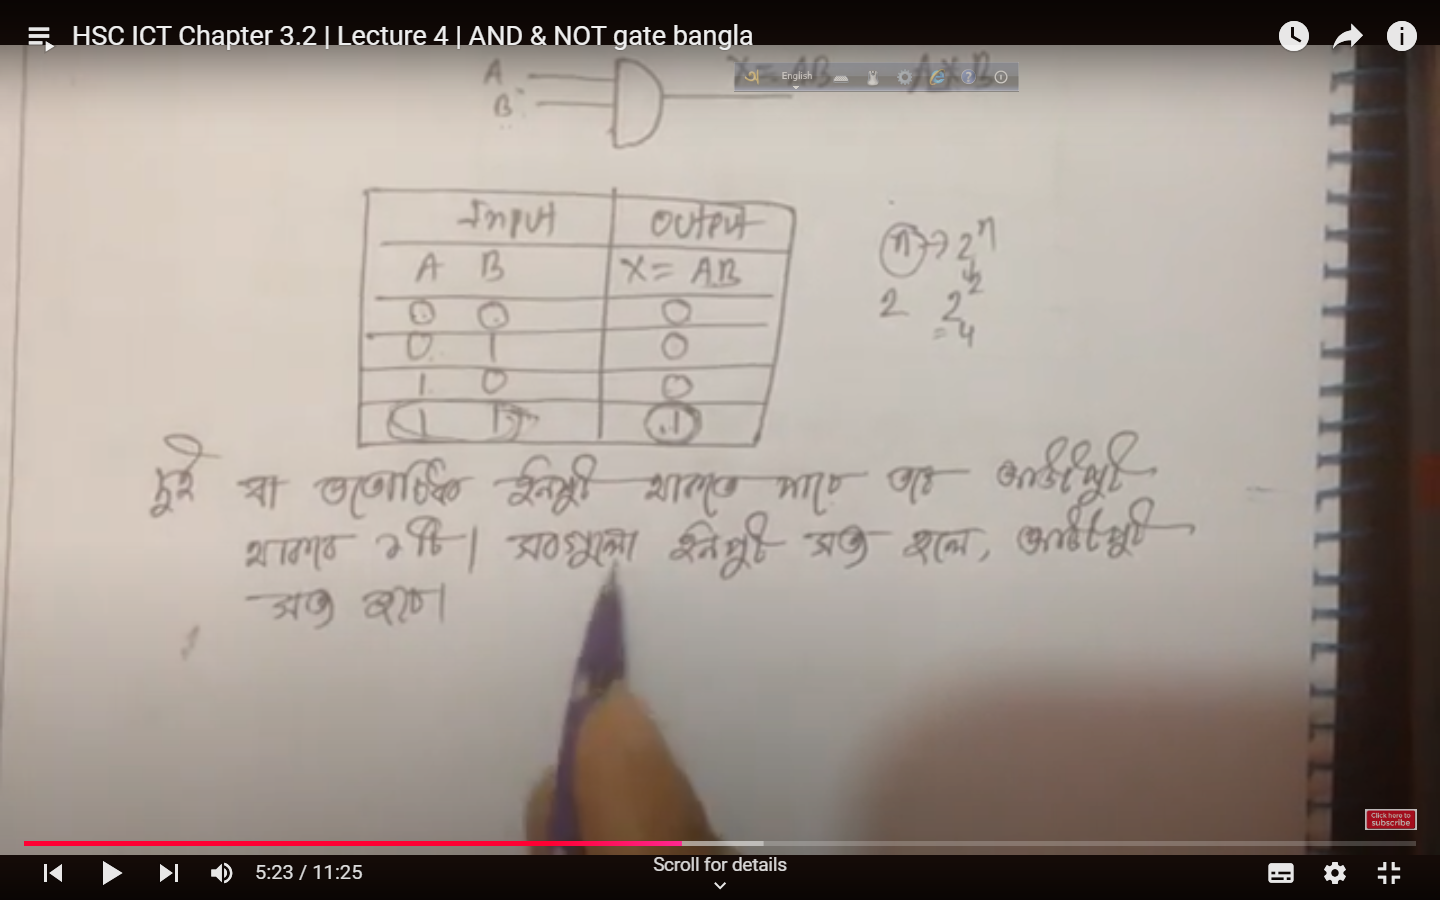 HSC ICT Chapter 3.2 | Lecture 4 | AND & NOT gate bangla
English
A
B
X = AB
A X B
Input Output
A B X = AB
0 0 0
0 1 0
1 0 0
1 1 1
n → 2ⁿ
2 2²
= 4
দুই বা ততোধিক ইনপুট থাকতে পারে তবে আউটপুট
থাকবে ১টি। সবগুলো ইনপুট সত্য হলে, আউটপুট
সত্য হবে।
Click here to
subscribe
5:23 / 11:25
Scroll for details